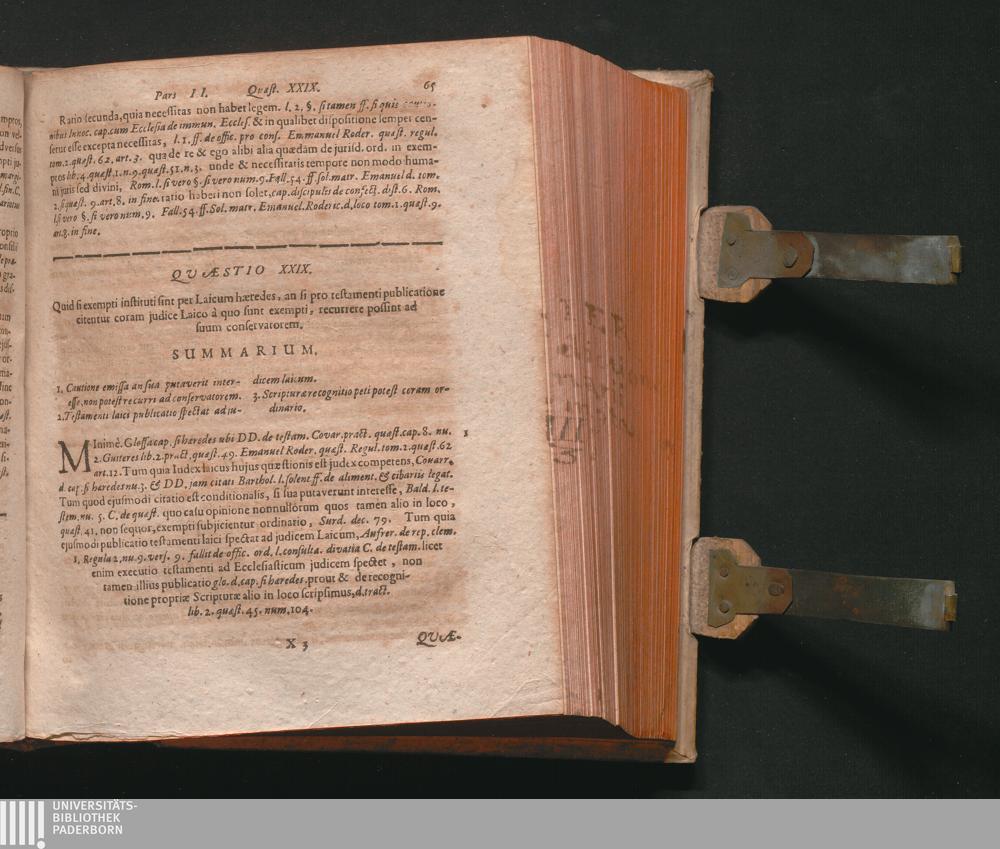 Pars II. Quæst. XXIX. 65
Ratio secunda, quia necessitas non habet legem. l. 2. §. si tamen ff. si quis
nibus Innoc. cap. cum Ecclesia de immun. Eccles. & in qualibet dispositione semper cen-
setur esse excepta necessitas, l. 1. ff. de offic. pro cons. Emmanuel Roder. quæst. regul.
tom. 2. quæst. 62. art. 3. qua de re & ego alibi alia quædam de jurisd. ord. in exem-
ptos lib. 4. quæst. 1. n. 9. quæst. 51. n. 3. unde & necessitatis tempore non modo huma-
ni juris sed divini, Rom. l. si vero §. si vero num. 9. Fall. 54. ff. sol. matr. Emanuel d. tom.
2. s. quæst. 9. art. 8. in fine. ratio haberi non solet, cap. discipulis de consect. dist. 6. Rom.
l. si vero §. si vero num. 9. Fall. 54. ff. Sol. matr. Emanuel. Roderic. d. loco tom. 1. quæst. 9.
art. 3. in fine.
QUÆSTIO XXIX.
Quid si exempti instituti sint per Laicum hæredes, an si pro testamenti publicatione
citentur coram judice Laico à quo sunt exempti, recurrere possint ad
suum conservatorem.
SUMMARIUM.
1. Cautione emissa an sua putaverit inter-
esse, non potest recurri ad conservatorem.
2. Testamenti laici publicatio spectat ad ju-
dicem laicum.
3. Scripturæ recognitio peti potest coram or-
dinario.
MInimè. Glossa cap. si hæredes ubi DD. de testam. Covar. pract. quæst. cap. 8. nu. 1
2. Gutteres lib. 2. pract. quæst. 49. Emanuel Roder. quæst. Regul. tom. 2. quæst. 62
art. 12. Tum quia Iudex laicus hujus quæstionis est judex competens, Couarr.
d. cap. si hæredes nu. 3. & DD. jam citati Barthol. l. solent ff. de aliment. & cibariis legat.
Tum quod ejusmodi citatio est conditionalis, si sua putaverunt interesse, Bald. l. te-
stem. nu. 5. C. de quæst. quo casu opinione nonnullorum quos tamen alio in loco,
quæst. 41. non sequor, exempti subjicientur ordinario, Surd. dec. 79. Tum quia
ejusmodi publicatio testamenti laici spectat ad judicem Laicum, Aufrer. de rep. clem.
1. Regula 2. nu. 9. vers. 9. fallit de offic. ord. l. consulta. divalia C. de testam. licet
enim executio testamenti ad Ecclesiasticum judicem spectet, non
tamen illius publicatio glo. d. cap. si hæredes. prout & de recogni-
tione propriæ Scripturæ alio in loco scripsimus, d. tract.
lib. 2. quæst. 45. num. 104.
X 3 QUÆ-
UNIVERSITÄTS-
BIBLIOTHEK
PADERBORN